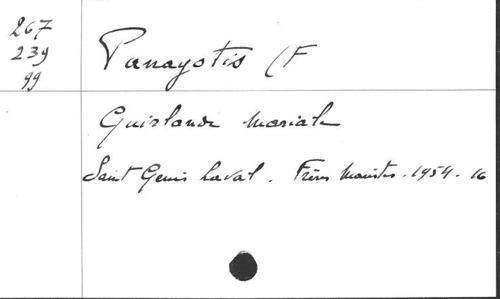 267
239
99
Panayotis (F
Guirlande mariale
Saint Genis Laval. Frères Maristes. 1954. 16